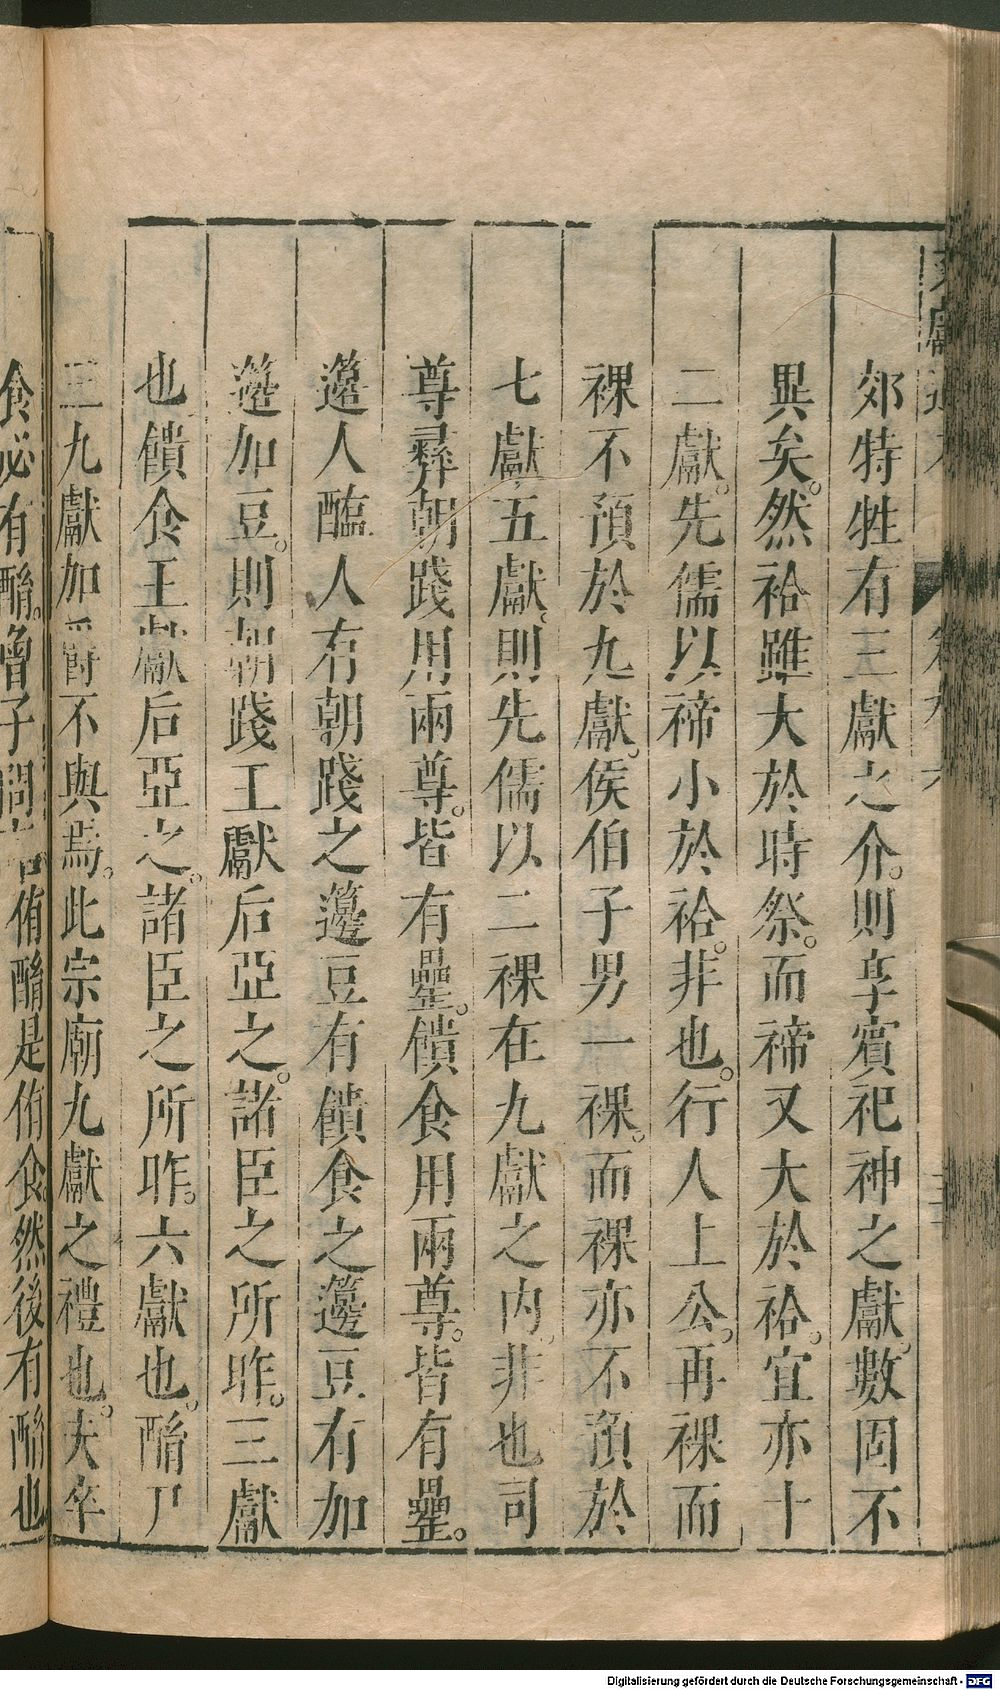 郊特牲有三獻之介。則享賓祀神之獻。數固不
異矣。然祫雖大於時祭。而禘又大於祫。宜亦十
二獻。先儒以禘小於祫。非也。行人上公。再祼而
祼不預於九獻。侯伯子男一祼。而祼亦不預於
七獻五獻。則先儒以二祼在九獻之内。非也司
尊彛朝踐用兩尊。皆有罍。饋食用兩尊。皆有罍。
籩人醢人有朝踐之籩豆有饋食之籩豆有加
籩加豆。則朝踐王獻后亞之。諸臣之所昨。三獻
也饋食王獻后亞之。諸臣之所昨。六獻也。酳尸
三九獻加爵不與焉。此宗廟九獻之禮也。夫卒
食必有酳。曾子問侑酳是侑食然後有酳也
Digitalisierung gefördert durch die Deutsche Forschungsgemeinschaft - DFG